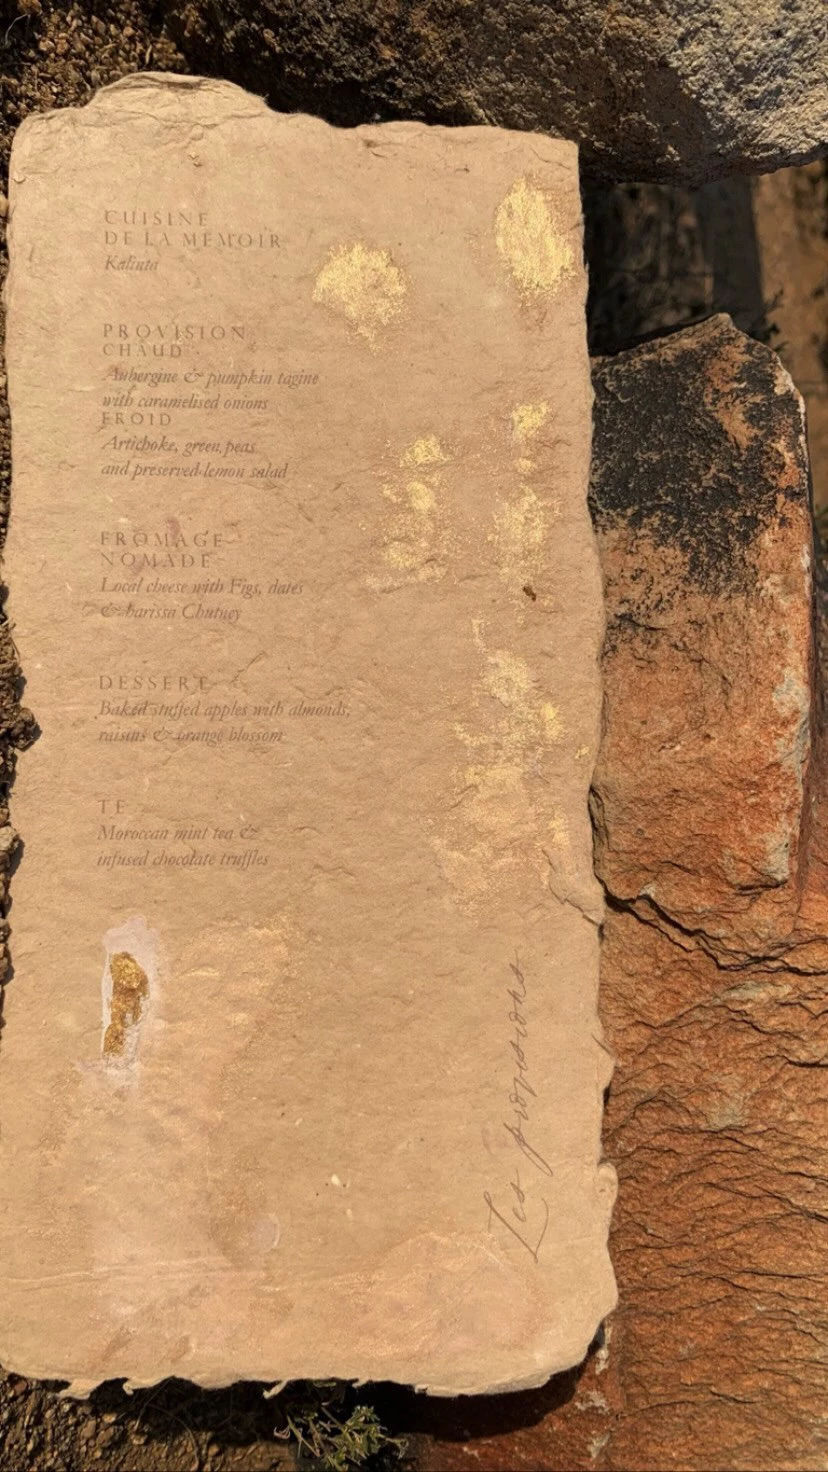 CUISINE
DE LA MEMOIR
Kalinta
PROVISION
CHAUD
Aubergine & pumpkin tagine
with caramelised onions
FROID
Artichoke, green peas
and preserved lemon salad
FROMAGE
NOMADE
Local cheese with Figs, dates
& harissa Chutney
DESSERT
Baked stuffed apples with almonds,
raisins & orange blossom
TE
Moroccan mint tea &
infused chocolate truffles
Les provisions